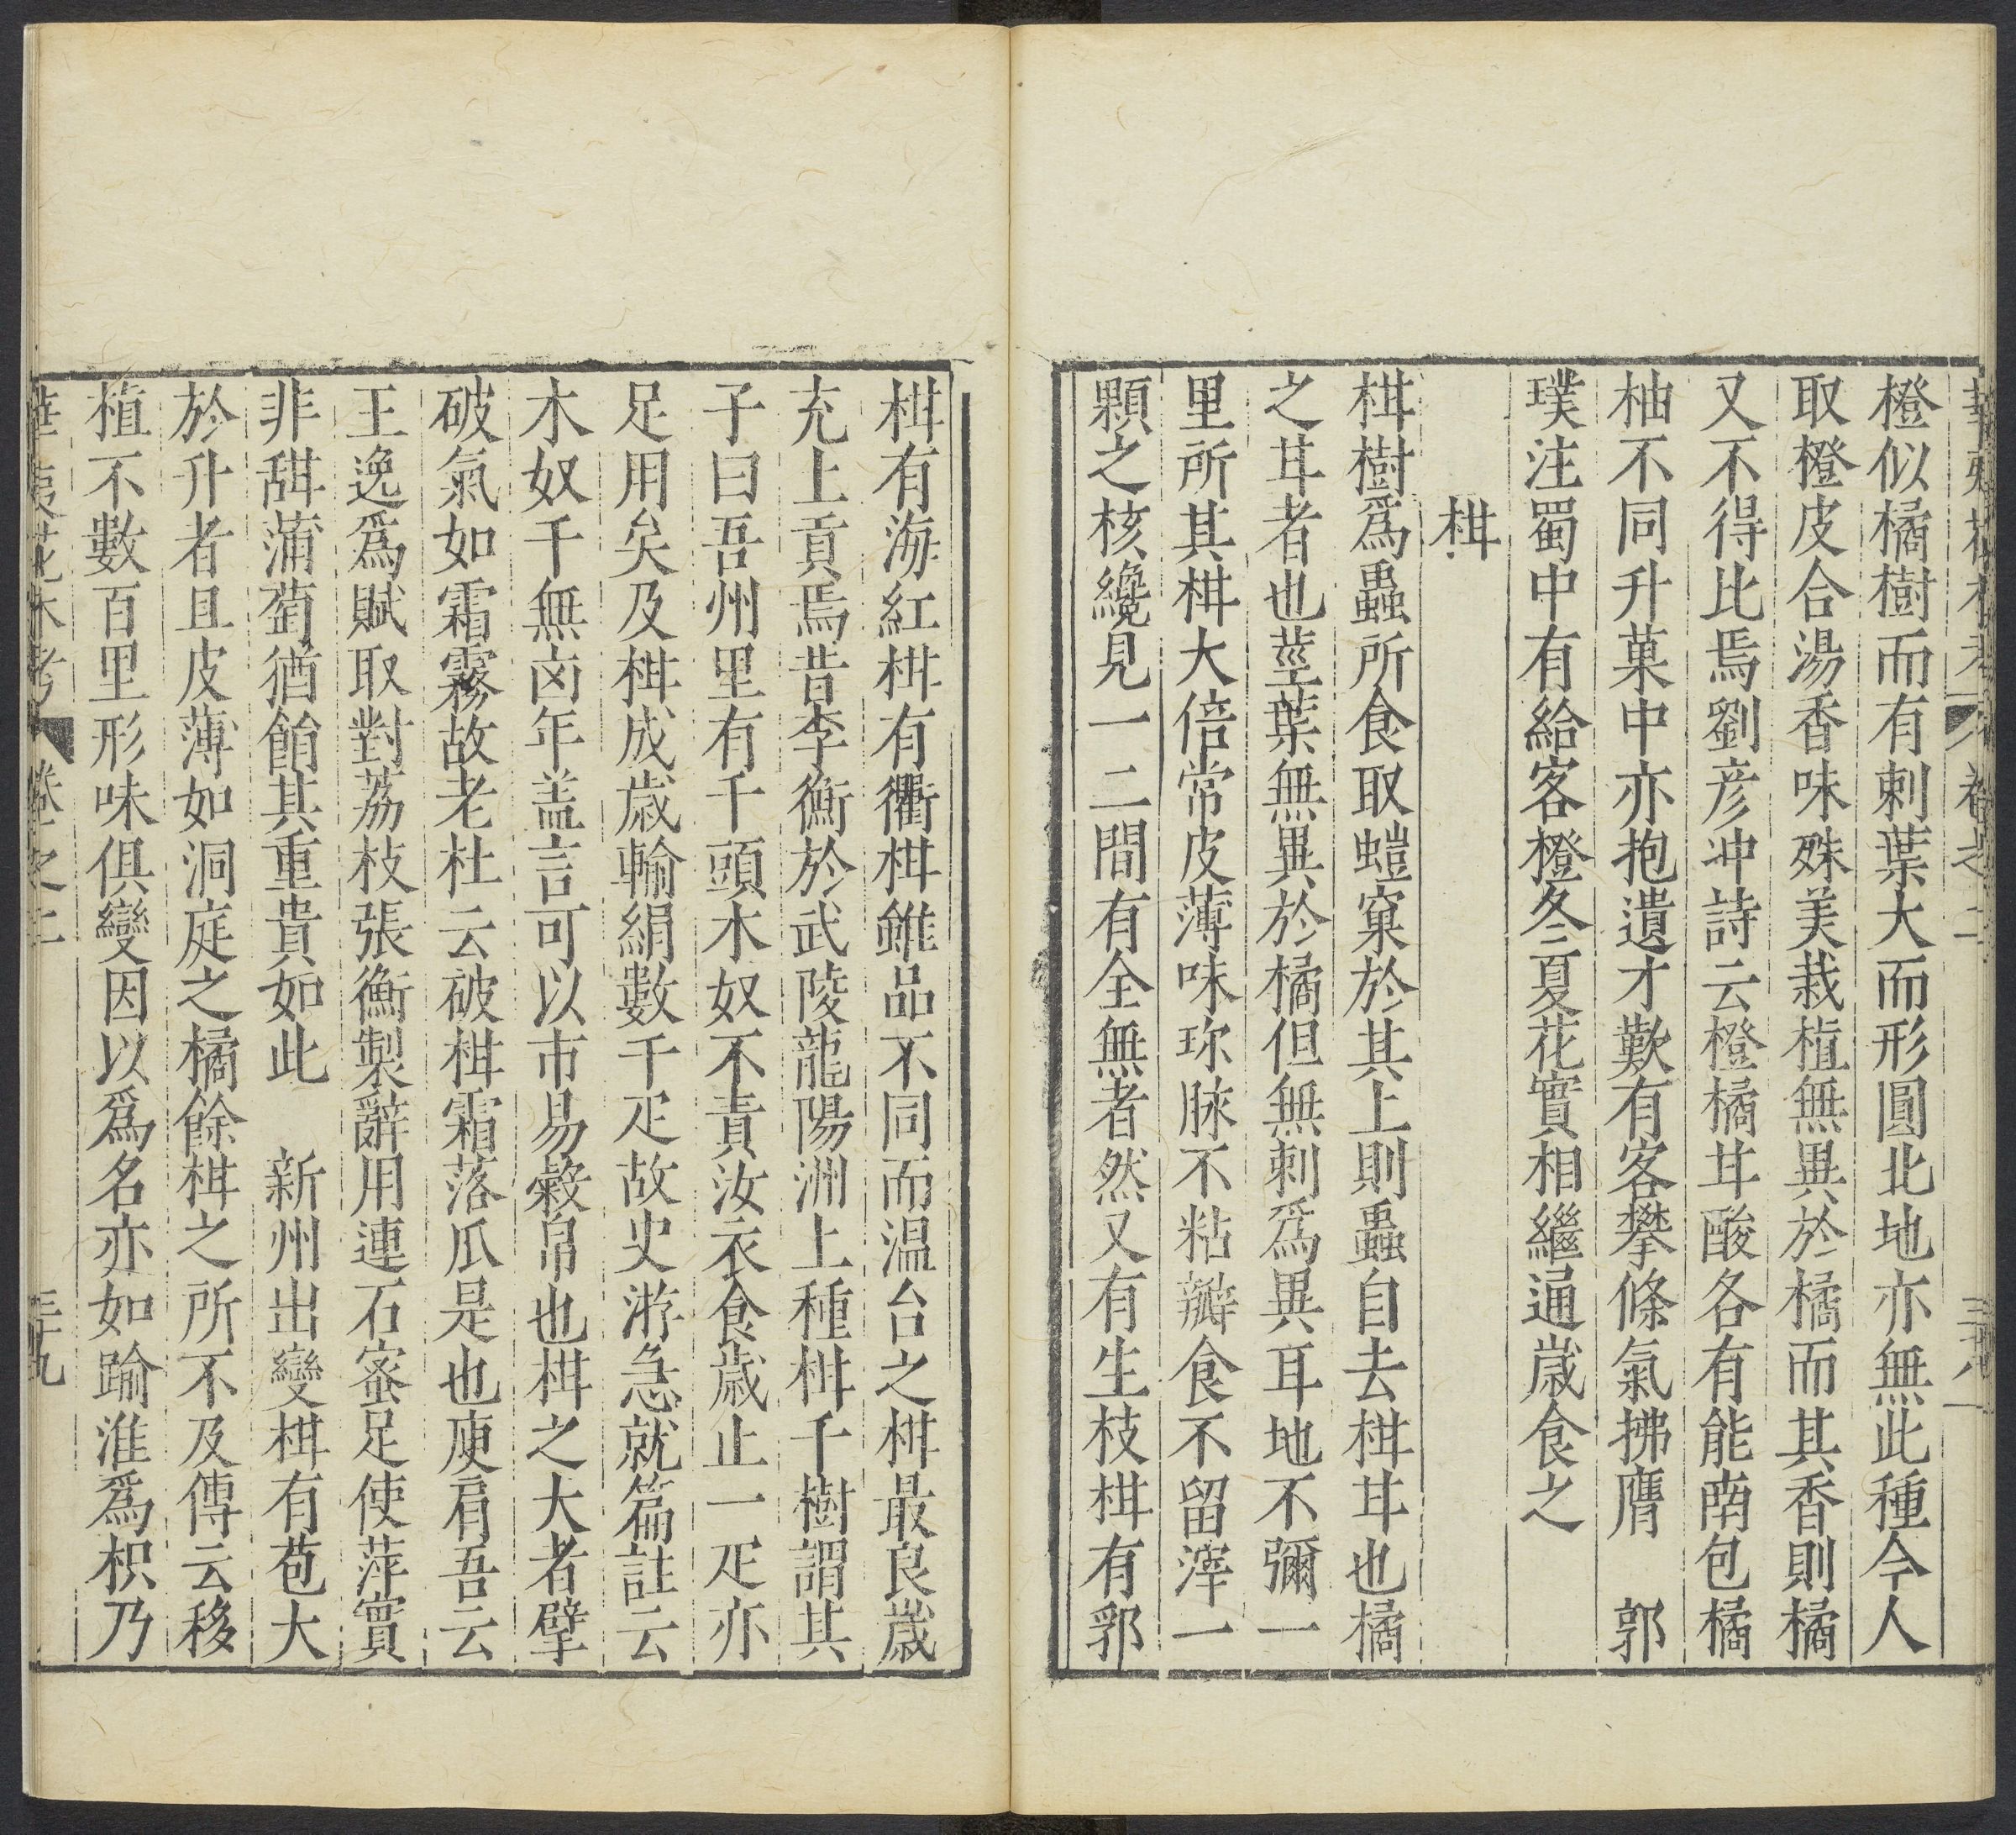 橙似橘樹而有刺葉大而形圓北地亦無此種今人
取橙皮合湯香味殊美栽植無異於橘而其香則橘
又不得比焉劉彥冲詩云橙橘甘酸各有能南包橘
柚不同升菓中亦抱遺才歎有客攀條氣拂膺　郭
璞注蜀中有給客橙冬夏花實相繼通歲食之
柑
柑樹爲蟲所食取螘窠於其上則蟲自去柑甘也橘
之甘者也莖葉無異於橘但無刺爲異耳地不彌一
里所其柑大倍常皮薄味珎脉不粘瓣食不留滓一
顆之核纔見一二間有全無者然又有生枝柑有郛
柑有海紅柑有衢柑雖品不同而温台之柑最良歲
充上貢焉昔李衡於武陵龍陽洲上種柑千樹謂其
子曰吾州里有千頭木奴不責汝衣食歲止一疋亦
足用矣及柑成歲輸絹數千疋故史游急就篇註云
木奴千無凶年盖言可以市易糓帛也柑之大者擘
破氣如霜霧故老杜云破柑霜落瓜是也庾肩吾云
王逸爲賦取對荔枝張衡製辭用連石蜜足使萍實
非甜蒲萄猶餡其重貴如此　新州出變柑有苞大
於升者且皮薄如洞庭之橘餘柑之所不及傳云移
植不數百里形味俱變因以爲名亦如踰淮爲枳乃
華夷花木考　卷之二　三十九